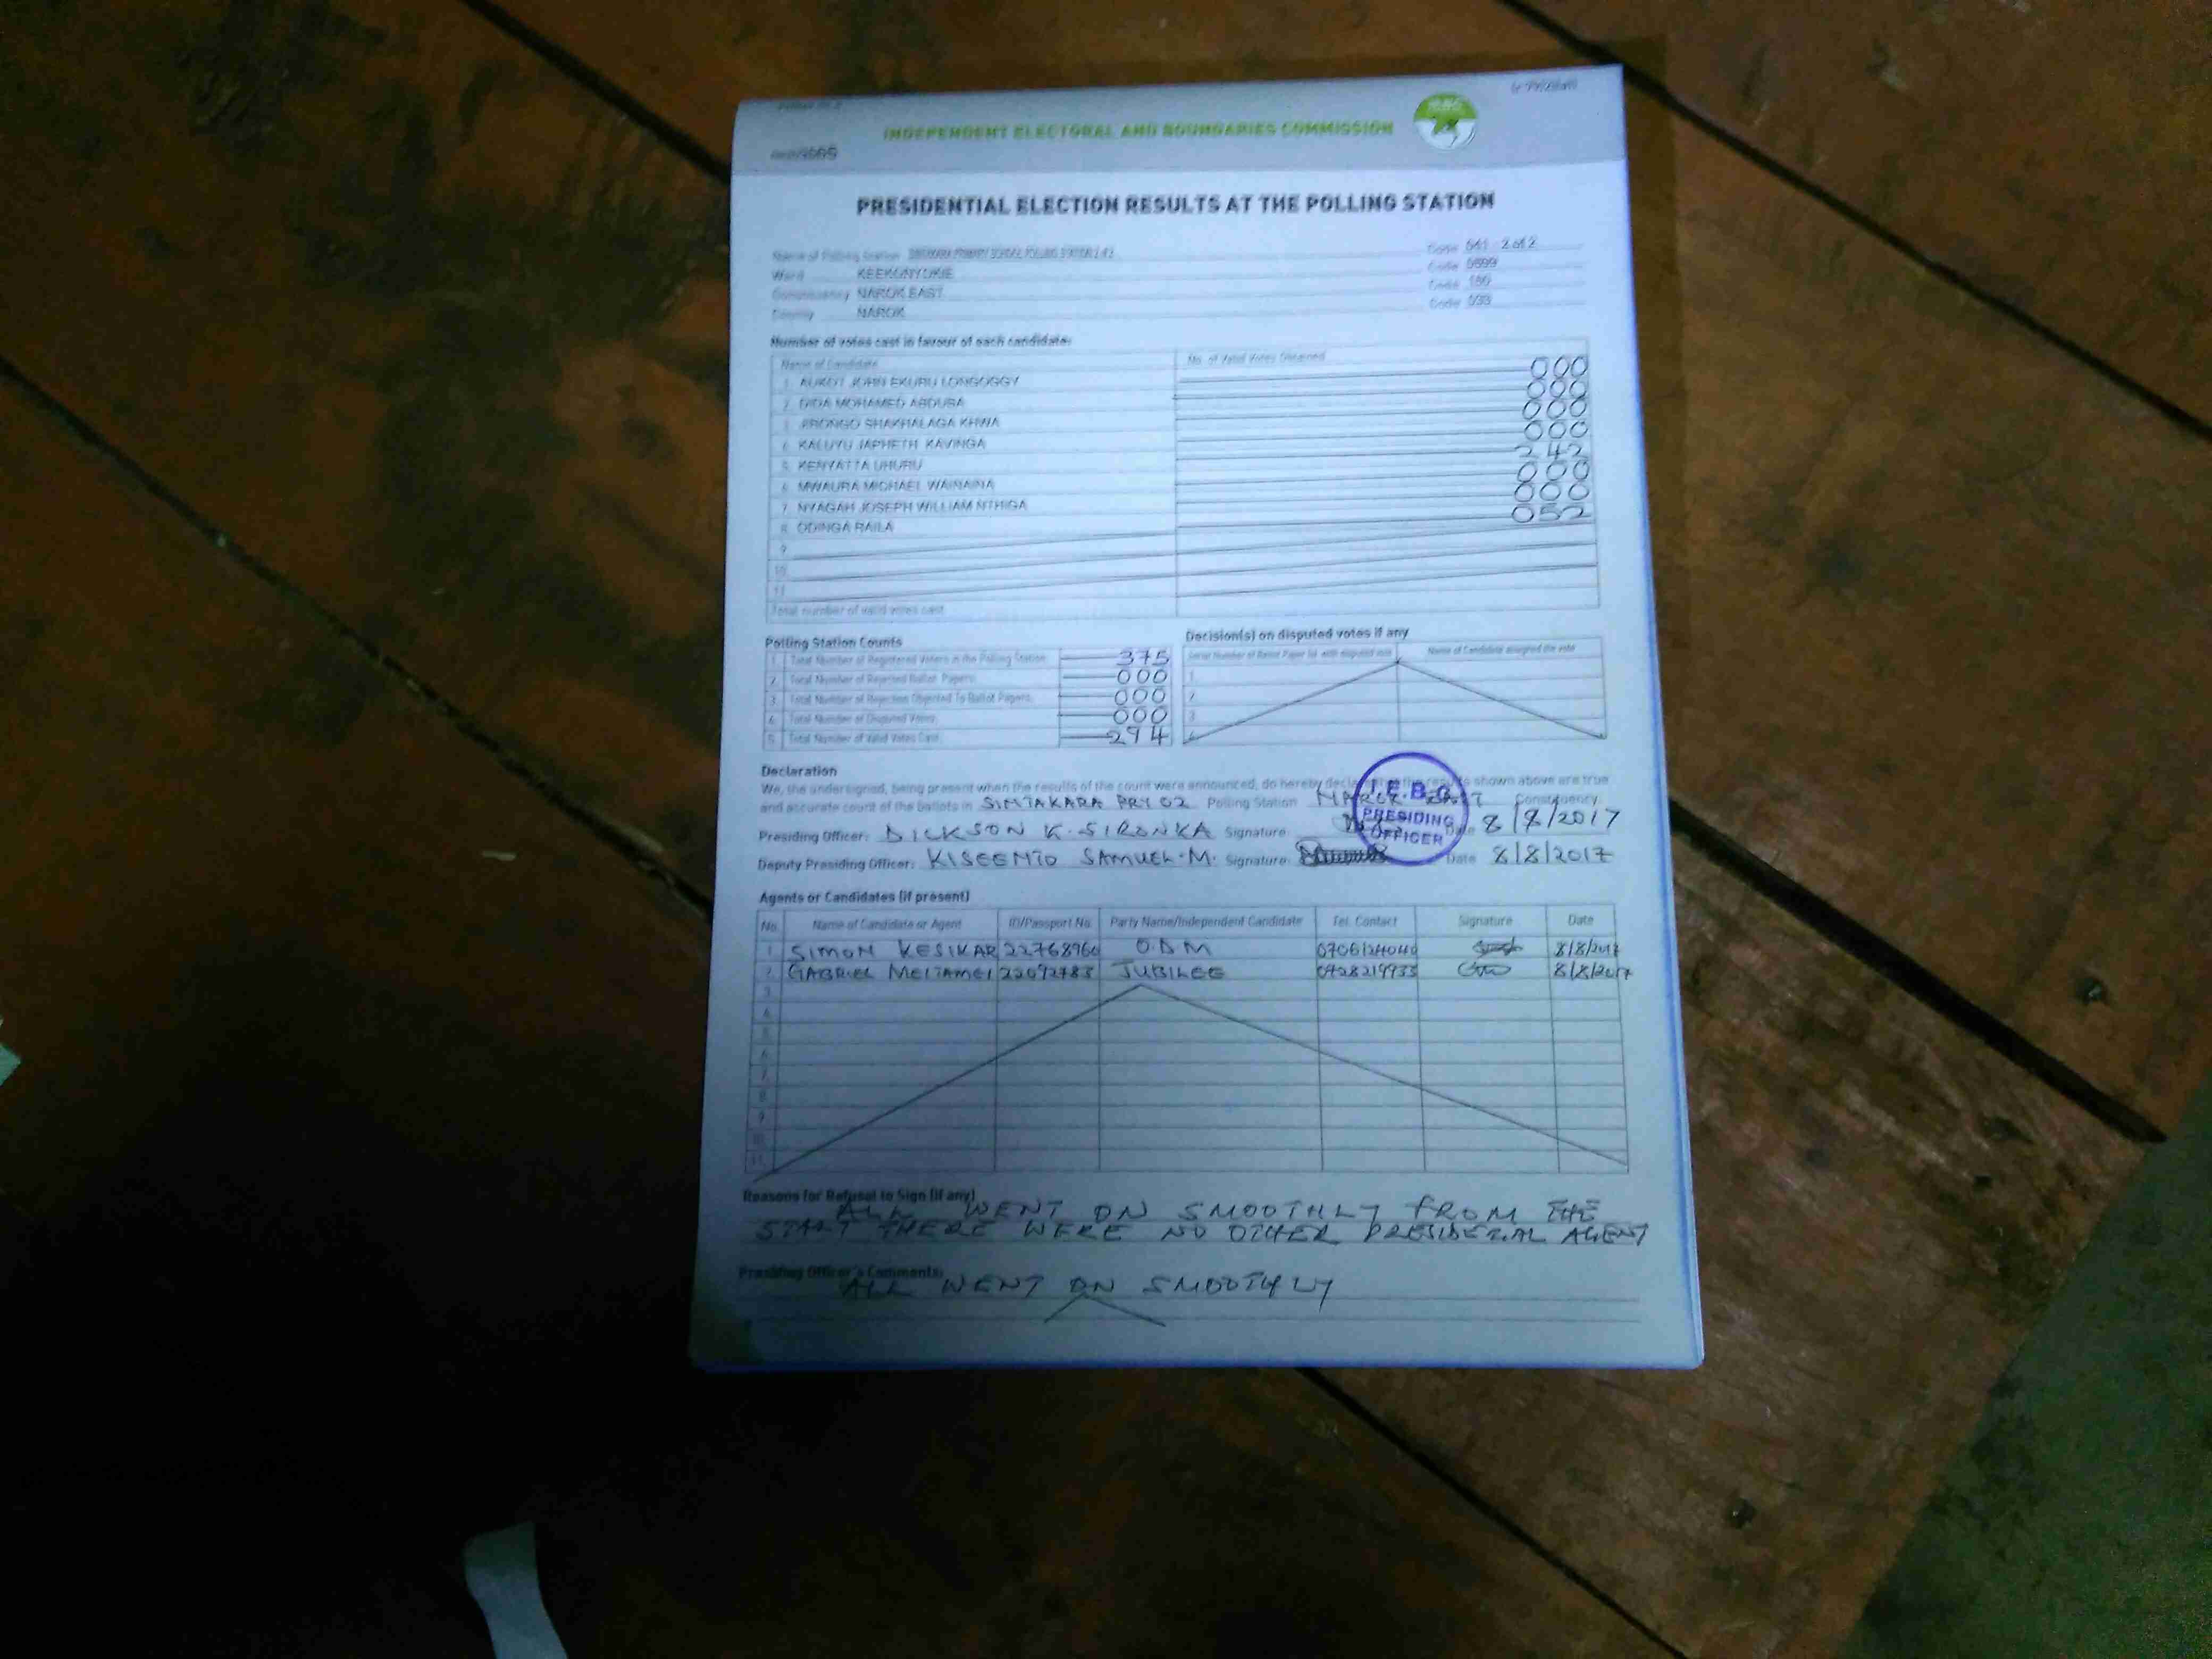 INDEPENDENT ELECTORAL AND BOUNDARIES COMMISSION
PRESIDENTIAL ELECTION RESULTS AT THE POLLING STATION
Name of Polling Station Code 041 2 of 2
Ward KEEKONYOKIE Code
Constituency NAROK EAST Code 180
County NAROK Code 033
Number of votes cast in favour of each candidate:
Name of Candidate No. of Valid Votes Obtained
1. AUKOT JOHN EKURU LONGOGGY 000
2. DIDA MOHAMED ABDUBA 000
3. JIRONGO SHAKHALAGA KHWA 000
4. KALUYU JAPHETH KAVINGA 000
5. KENYATTA UHURU 242
6. MWAURA MICHAEL WAINAINA 000
7. NYAGAH JOSEPH WILLIAM NTHIGA 000
8. ODINGA RAILA 052
9
10
11
Total number of valid votes cast
Polling Station Counts
1. Total Number of Registered Voters in the Polling Station 375
2. Total Number of Rejected Ballot Papers 000
3. Total Number of Rejection Objected To Ballot Papers 000
4. Total Number of Disputed Votes 000
5. Total Number of Valid Votes Cast 294
Decision(s) on disputed votes if any
Serial Number of Ballot Paper Name of Candidate assigned the vote
1
2
3
4
Declaration
We, the undersigned, being present when the results of the count were announced, do hereby declare that the results shown above are true
and accurate count of the ballots in SINTAKARA PRY 02 Polling Station NAROK EAST Constituency
I.E.B.C
PRESIDING
OFFICER
Presiding Officer: DICKSON K. SIRONKA Signature: Date 8/8/2017
Deputy Presiding Officer: KISEENTO SAMUEL.M. Signature: Date 8/8/2017
Agents or Candidates (if present)
No. Name of Candidate or Agent ID/Passport No Party Name/Independent Candidate Tel. Contact Signature Date
1 SIMON KESIKAR 22768960 O.D.M 0706124040 8/8/2017
2 GABRIEL MEITAMEI JUBILEE 0728219933 8/8/2017
3
4
5
6
7
8
9
10
11
Reasons for Refusal to Sign (if any)
ALL WENT ON SMOOTHLY FROM THE
START THERE WERE NO OTHER PRESIDEZIAL AGENT
Presiding Officer's Comments:
ALL WENT ON SMOOTHLY